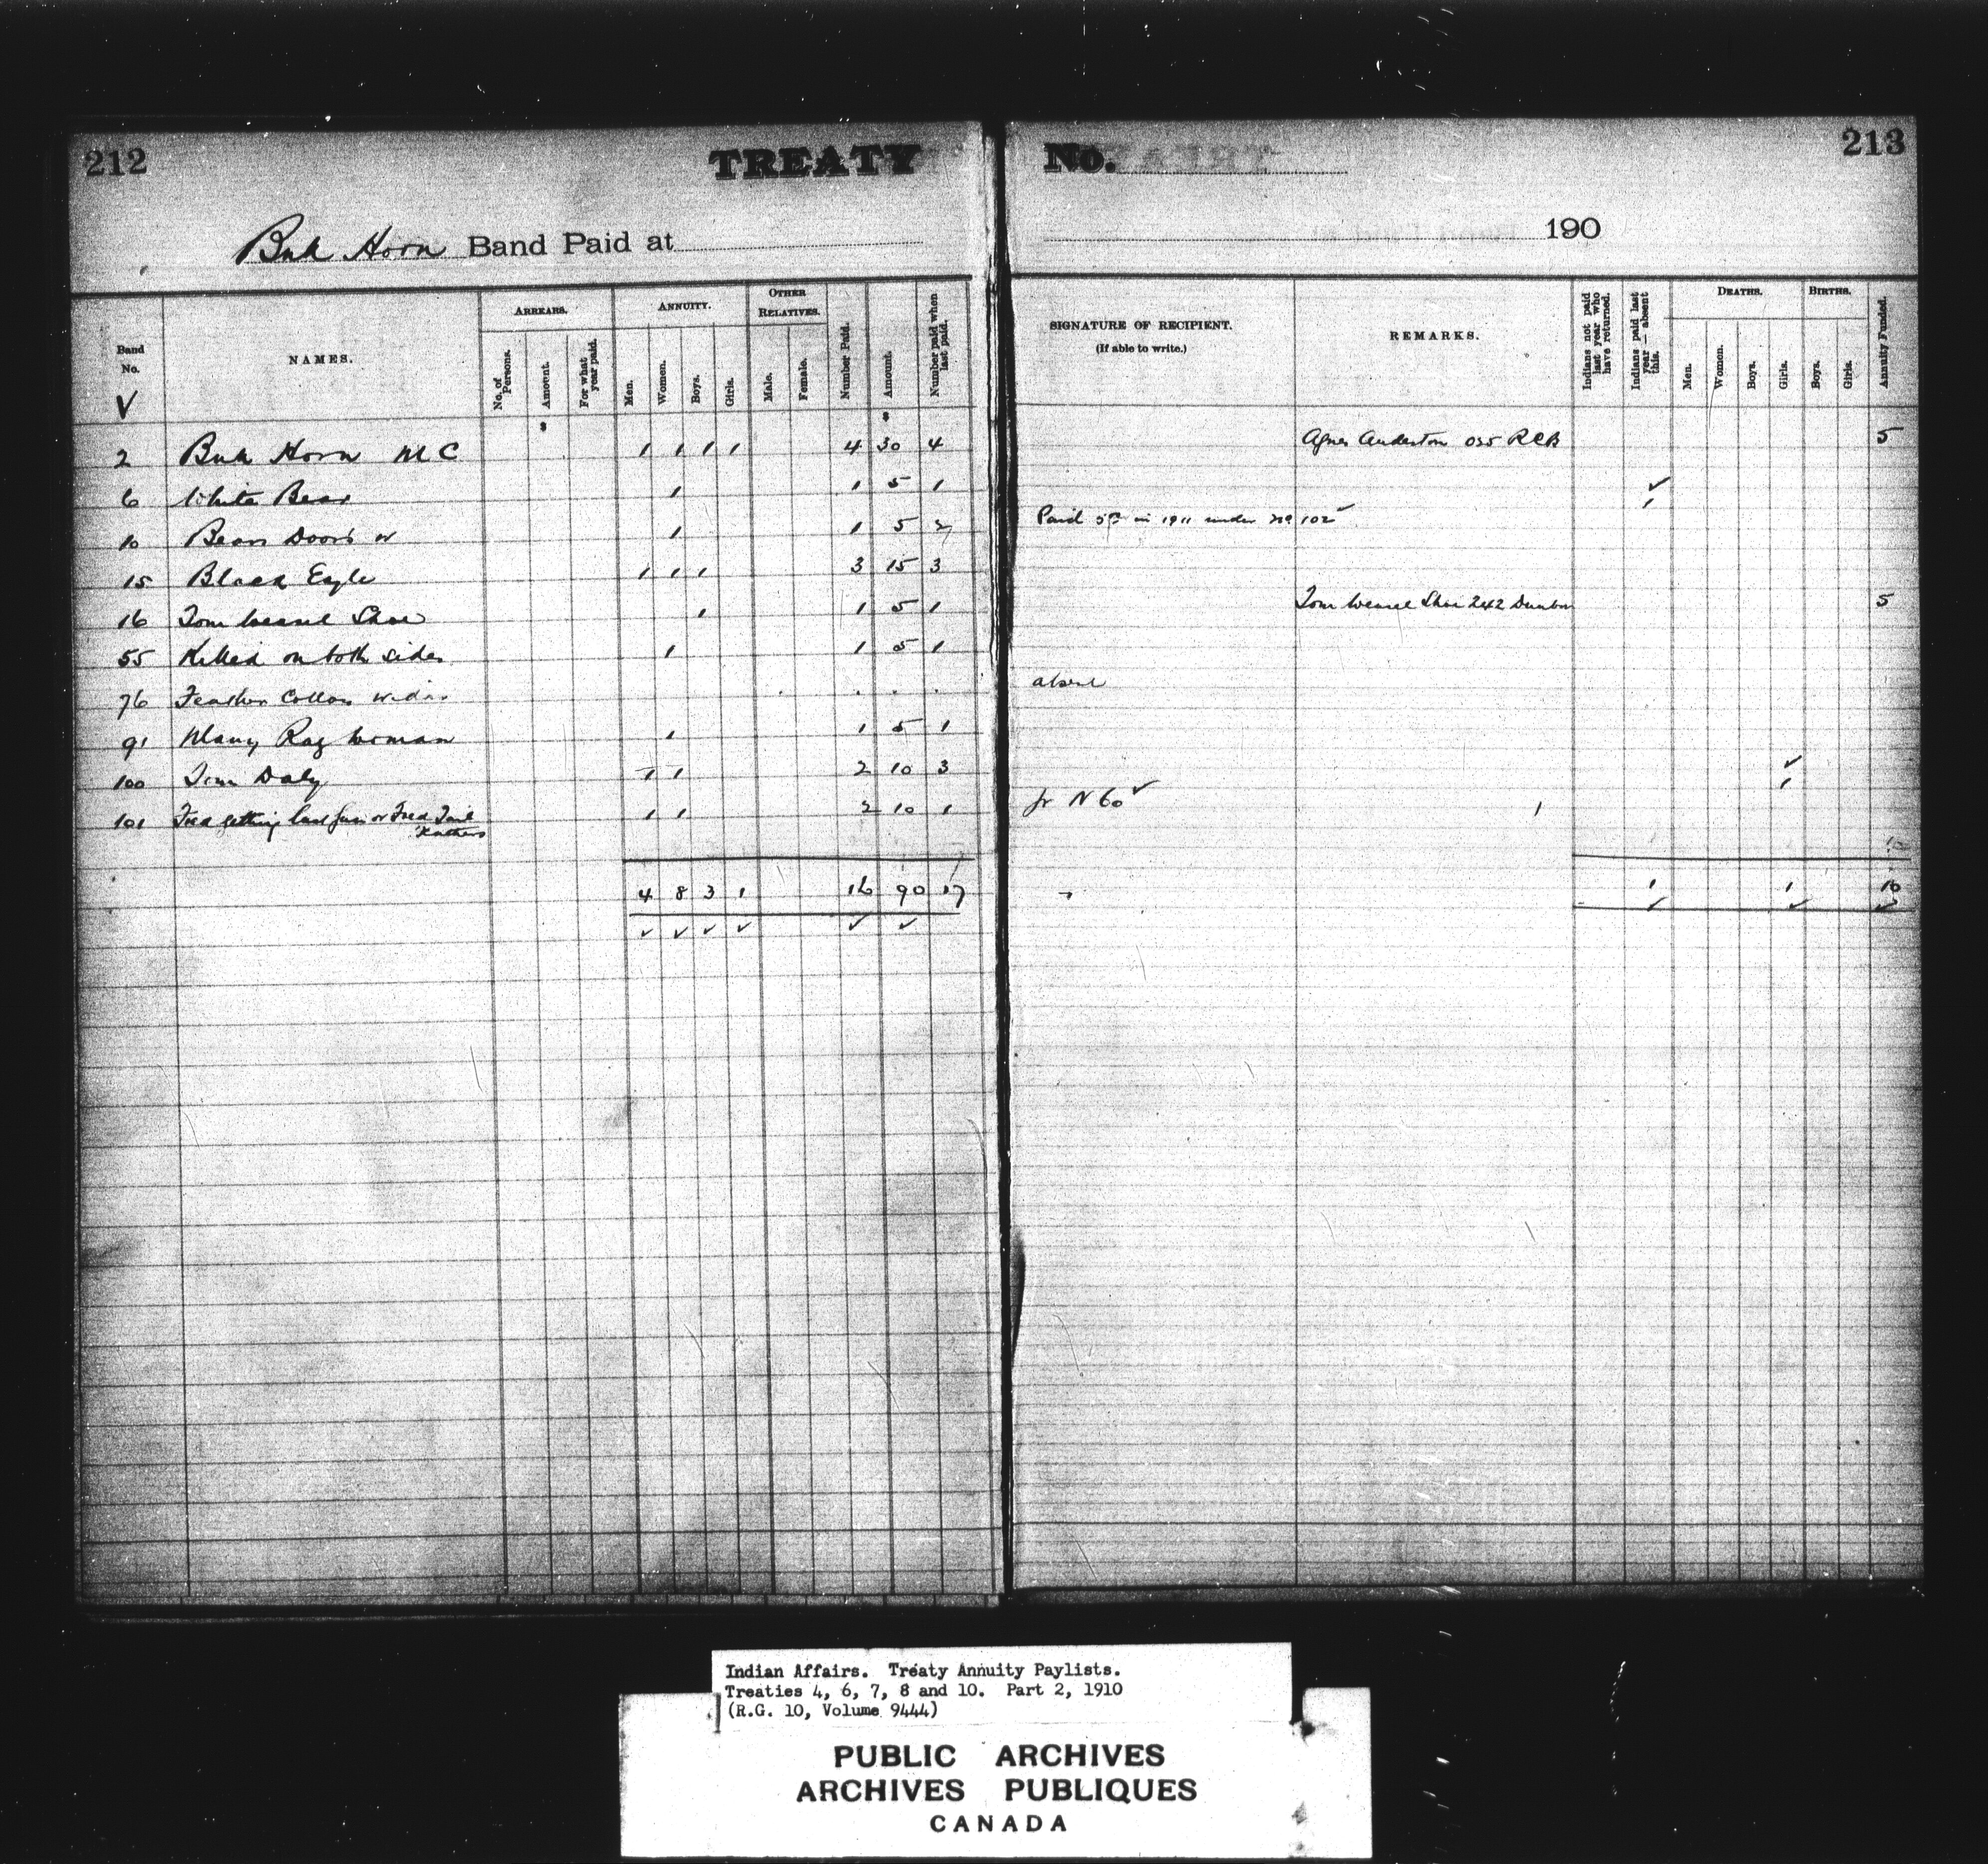 212
TREATY
No.
213
Buk Horn Band Paid at
190
Band No.
NAMES.
ARREARS.
No. of Persons.
Amount.
For what year paid.
ANNUITY.
Men.
Women.
Boys.
Girls.
OTHER RELATIVES.
Male.
Female.
Number Paid.
Amount.
Number paid when last paid.
SIGNATURE OF RECIPIENT.
(If able to write.)
REMARKS.
Indians not paid last year who have returned.
Indians paid last year — absent this.
DEATHS.
Men.
Women.
Boys.
Girls.
BIRTHS.
Boys.
Girls.
Annuity Funded.
$ $
2 Buk Horn M C 1 1 1 1 4 30 4 Agnes Anderton 035 RCB 5
6 White Bear 1 1 5 1 ✓
10 Bears Door 1 1 5 2 Paid 5 in 1911 under No 102 ✓ 1
15 Black Eagle 1 1 1 3 15 3
16 Tom Weasel Shoe 1 1 5 1 Tom Weasel Shoe 242 Dunbow 5
55 Killed on both sides 1 1 5 1
76 Feather Collar absent
91 Many Rag Woman 1 1 5 1
100 Jim Daly 1 1 2 10 3 ✓ 1
101 Fred getting last gun or Fred Tail Feathers 1 1 2 10 1 fr N 60 ✓ 1
4 8 3 1 16 90 17 1 1 10
✓ ✓ ✓ ✓ ✓ ✓ ✓ ✓ ✓
Indian Affairs. Treaty Annuity Paylists.
Treaties 4, 6, 7, 8 and 10. Part 2, 1910
(R.G. 10, Volume 9444)
PUBLIC ARCHIVES
ARCHIVES PUBLIQUES
CANADA